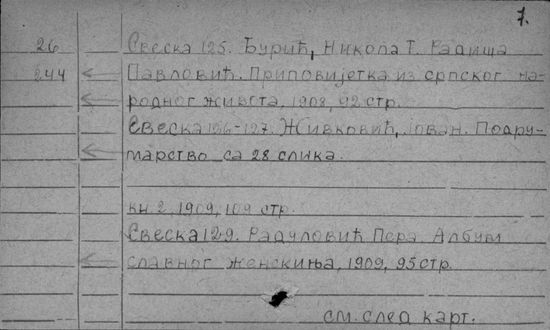 7.
26 Свеска 125. Ђурић, Никола Т. Радиша
244 Павловић. Приповијетка из српског на-
родног живота, 1908, 92 стр.
Свеска 126-127. Живковић, Јован. Подру-
марство са 28 слика.
књ 2, 1909, 109 стр.
Свеска 129. Радуловић Пера. Албум
славног женскиња, 1909, 95 стр.
см. след карт.